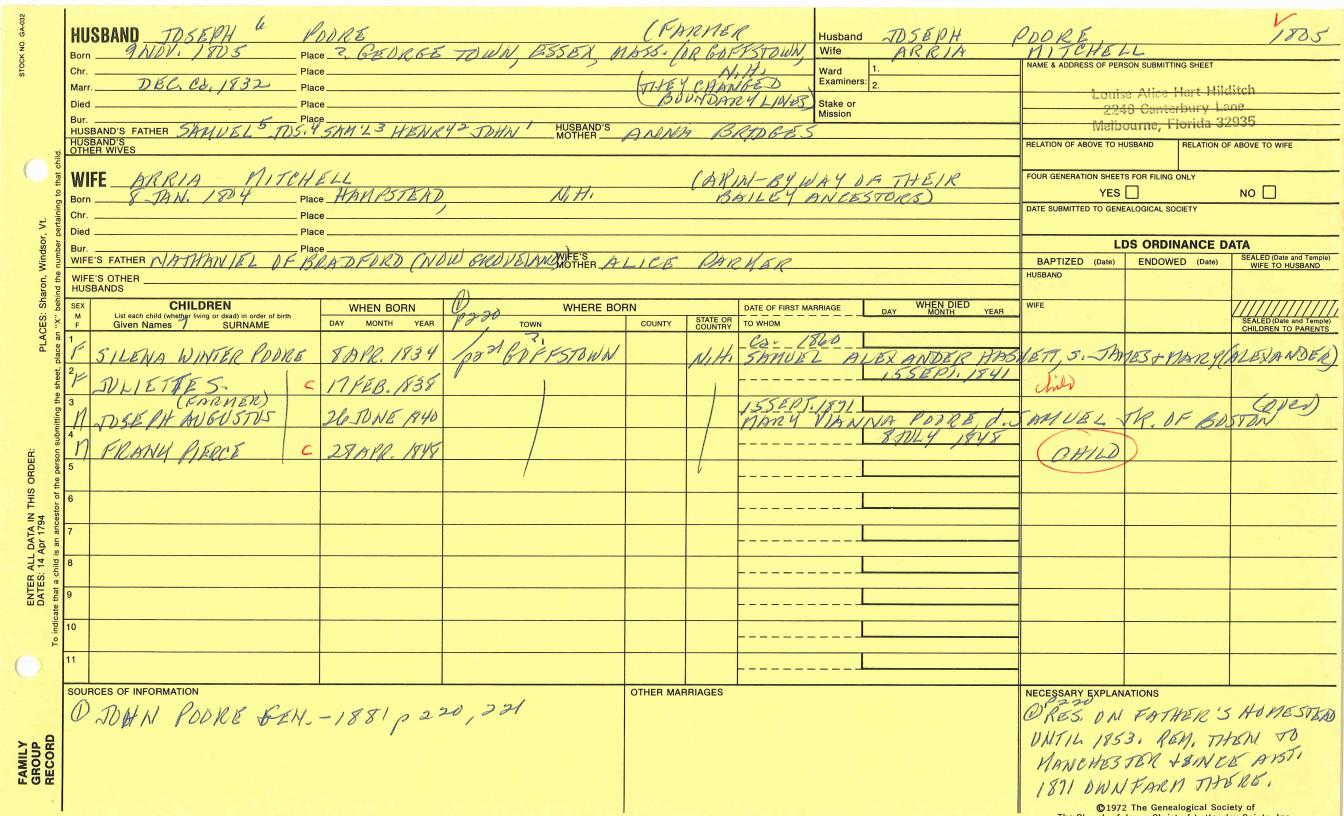 STOCK NO. GA-032
HUSBAND JOSEPH 6 POORE (FARMER
Born 9 NOV. 1805 Place ? GEORGE TOWN, ESSEX, MASS. (OR GOFFSTOWN,
Chr. Place N.H.
Marr. DEC. Ca. 1832 Place (THEY CHANGED
Died Place BOUNDARY LINES)
Bur. Place
HUSBAND'S FATHER SAMUEL 5 JOS. 4 SAM'L 3 HENRY 2 JOHN 1 HUSBAND'S MOTHER ANNA BRIDGES
HUSBAND'S OTHER WIVES
Husband JOSEPH POORE 1805
Wife ARRIA MITCHELL
Ward Examiners: 1.
2.
Stake or Mission
NAME & ADDRESS OF PERSON SUBMITTING SHEET
Louise Alice Hart Hilditch
2246 Canterbury Lane
Melbourne, Florida 32935
RELATION OF ABOVE TO HUSBAND RELATION OF ABOVE TO WIFE
FOUR GENERATION SHEETS FOR FILING ONLY
YES NO
DATE SUBMITTED TO GENEALOGICAL SOCIETY
WIFE ARRIA MITCHELL (AKIN-BY WAY OF THEIR
Born 8 JAN. 1804 Place HAMPSTEAD, N.H. BAILEY ANCESTORS)
Chr. Place
Died Place
Bur. Place
WIFE'S FATHER NATHANIEL OF BRADFORD (NOW GROVELAND) WIFE'S MOTHER ALICE PARKER
WIFE'S OTHER HUSBANDS
LDS ORDINANCE DATA
BAPTIZED (Date) ENDOWED (Date) SEALED (Date and Temple) WIFE TO HUSBAND
HUSBAND
WIFE
SEALED (Date and Temple) CHILDREN TO PARENTS
SEX M F CHILDREN WHEN BORN ① p220 WHERE BORN DATE OF FIRST MARRIAGE WHEN DIED
List each child (whether living or dead) in order of birth
Given Names 7 SURNAME DAY MONTH YEAR TOWN COUNTY STATE OR COUNTRY TO WHOM DAY MONTH YEAR
1 ca. 1860
F SILENA WINTER POORE 8 APR. 1834 p221 GOFFSTOWN ? N.H. SAMUEL ALEXANDER HASLETT, S. JAMES + MARY (ALEXANDER)
2 15 SEPT. 1841
F JULIETTE S. C 17 FEB. 1838 child
3 (FARMER) 15 SEPT. 1871
M JOSEPH AUGUSTUS 26 JUNE 1840 MARY VIANNA POORE, d. SAMUEL JR. OF BOSTON
4 8 JULY 1848
M FRANK PIERCE C 28 APR. 1848 CHILD
5
6
7
8
9
10
11
SOURCES OF INFORMATION
① JOHN POORE GEN. - 1881 p 220, 221
OTHER MARRIAGES
NECESSARY EXPLANATIONS
① p220 RES. ON FATHER'S HOMESTEAD
UNTIL 1853. REM. THEN TO
MANCHESTER + SINCE
1871 OWN FARM THERE.
©1972 The Genealogical Society of
ENTER ALL DATA IN THIS ORDER:
DATES: 14 Apr 1794 PLACES: Sharon, Windsor, Vt.
To indicate that a child is an ancestor of the person submitting the sheet, place an "X" behind the number pertaining to that child.
FAMILY GROUP RECORD